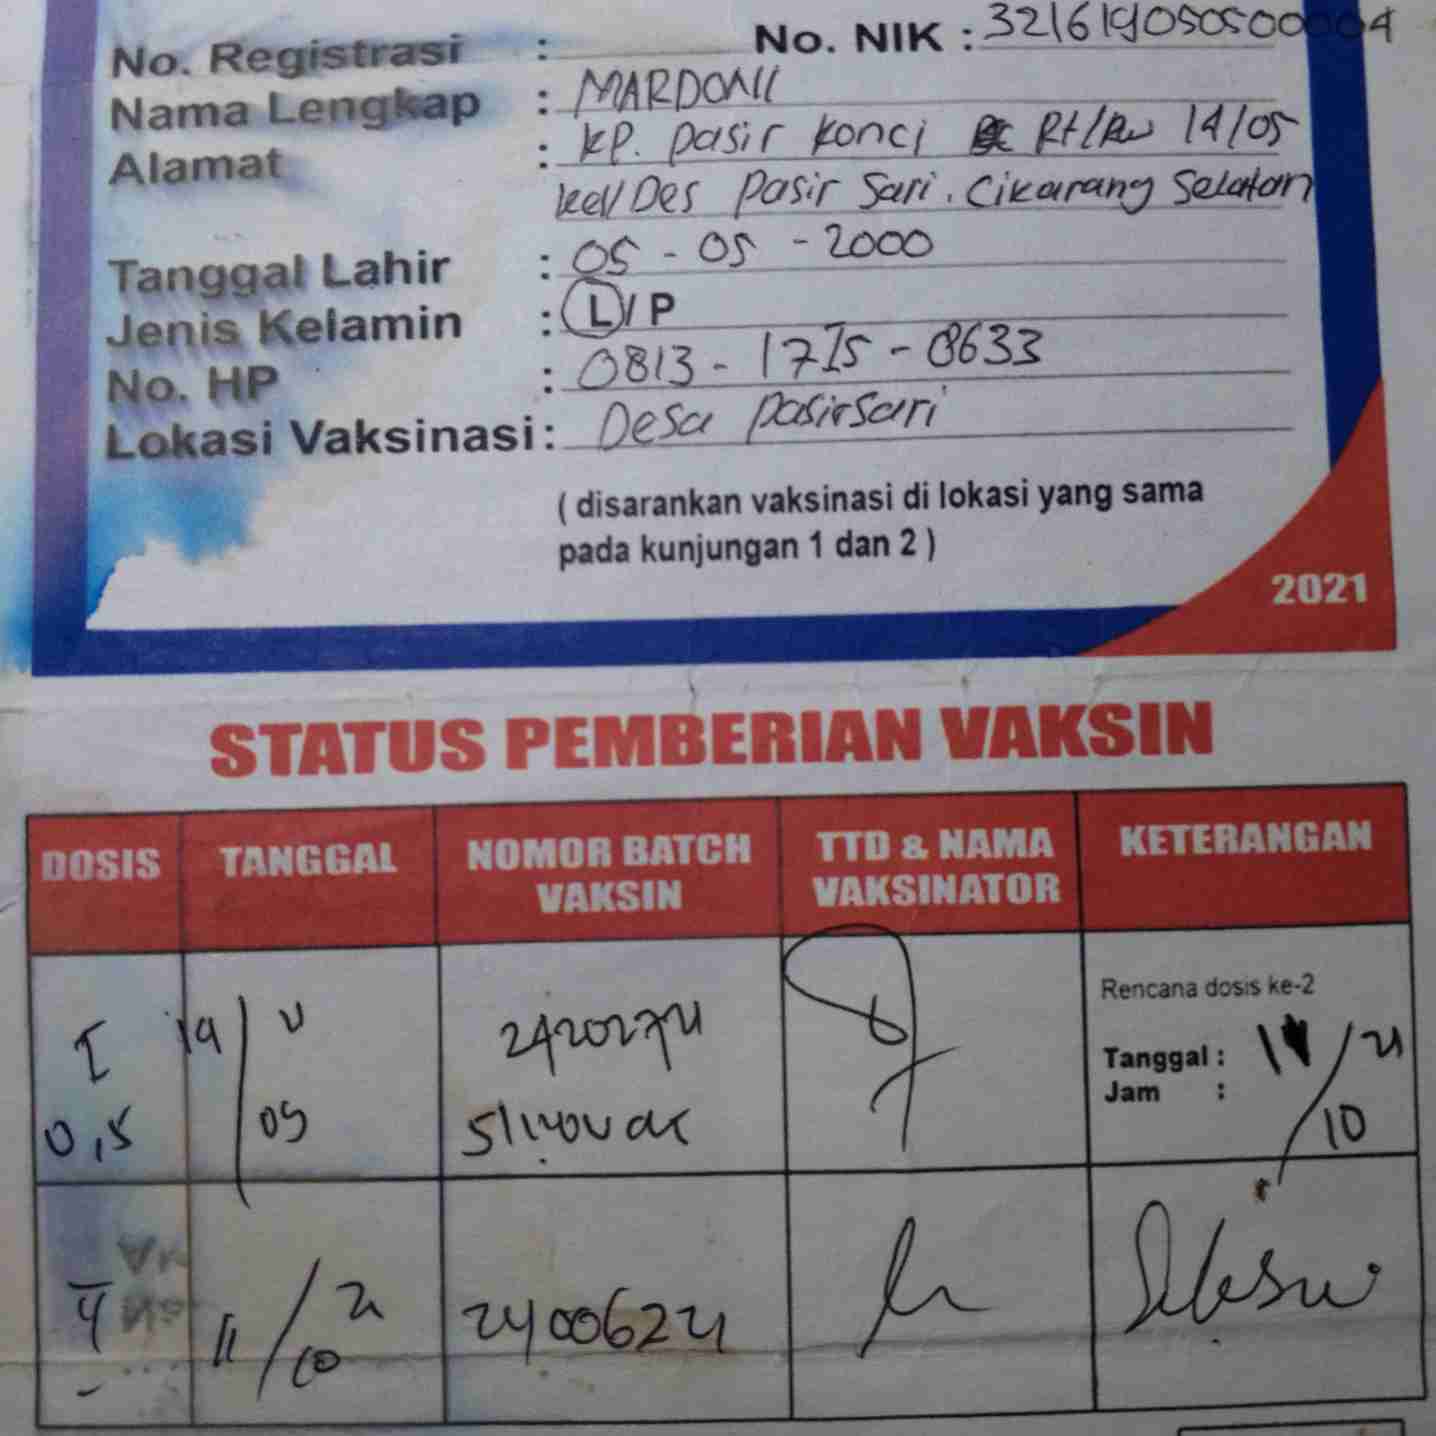 No. Registrasi : No. NIK : 3216190505000004
Nama Lengkap : MARDONII
Alamat : KP. Pasir Konci Rt/Rw 14/05
Kel/Des Pasir Sari. Cikarang Selatan
Tanggal Lahir : 05 - 05 - 2000
Jenis Kelamin : L/P
No. HP : 0813 - 1715 - 8633
Lokasi Vaksinasi : Desa Pasirsari
( disarankan vaksinasi di lokasi yang sama
pada kunjungan 1 dan 2 )
2021
STATUS PEMBERIAN VAKSIN
DOSIS TANGGAL NOMOR BATCH VAKSIN TTD & NAMA VAKSINATOR KETERANGAN
Rencana dosis ke-2
I 24202721 Tanggal : 11/10 21
0,5 09 Sinovac Jam :
II 11/10 21 24006221 Selesai